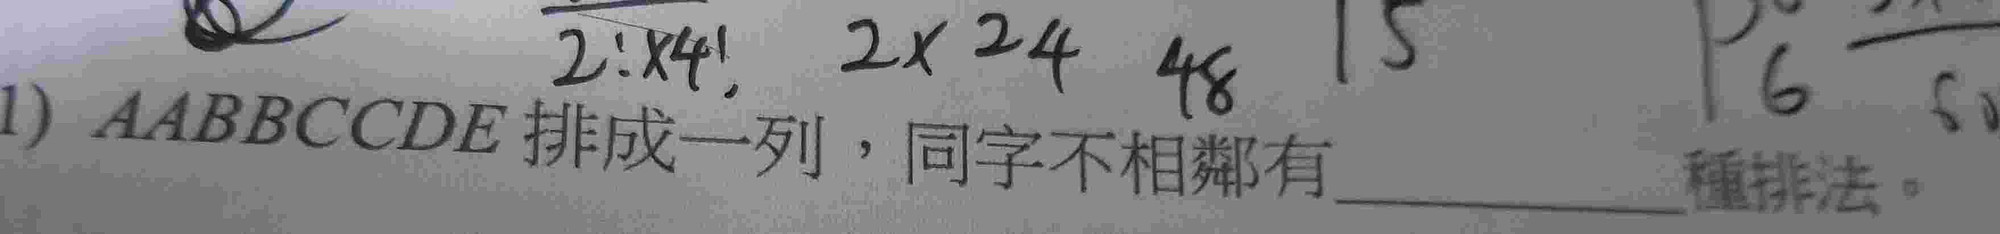 2!×4! 2×24 48 15 P6
1) AABBCCDE排成一列，同字不相鄰有________種排法。